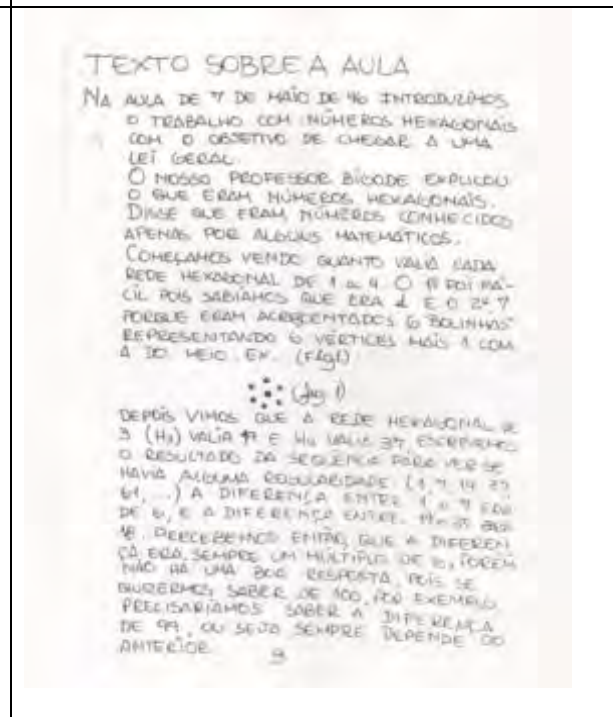 TEXTO SOBRE A AULA
NA AULA DE 7 DE MAIO DE 96 INTRODUZIMOS
O TRABALHO COM NÚMEROS HEXAGONAIS
COM O OBJETIVO DE CHEGAR A UMA
LEI GERAL.
O NOSSO PROFESSOR BIGODE EXPLICOU
O QUE ERAM NÚMEROS HEXAGONAIS.
DISSE QUE ERAM NÚMEROS CONHECIDOS
APENAS POR ALGUNS MATEMÁTICOS.
COMEÇAMOS VENDO QUANTO VALIA CADA
REDE HEXAGONAL DE 1 a 4. O 1º FOI FÁ-
CIL POIS SABÍAMOS QUE ERA 1 E O 2º 7
PORQUE ERAM ACRESCENTADOS 6 BOLINHAS
REPRESENTANDO 6 VÉRTICES MAIS 1 COM
A DO MEIO. EX. (Fig1)
(fig 1)
DEPOIS VIMOS QUE A REDE HEXAGONAL DE
3 (H3) VALIA E H4 VALIA 37. ESCREVEMOS
O RESULTADO DA SEQÜÊNCIA PARA VER SE
HAVIA ALGUMA REGULARIDADE (1, 7, 19, 37,
61, ...) A DIFERENÇA ENTRE 1 e 7 ERA
DE 6, E A DIFERENÇA ENTRE 19 37
18. PERCEBEMOS ENTÃO, QUE A DIFEREN
ÇA ERA SEMPRE UM MÚLTIPLO DE 6, PORÉM
NÃO HÁ UMA BOA RESPOSTA, POIS SE
QUIZERMOS SABER DE 100, POR EXEMPLO
PRECISARÍAMOS SABER A DIFERENÇA
DE 99, OU SEJA SEMPRE DEPENDE DO
ANTERIOR